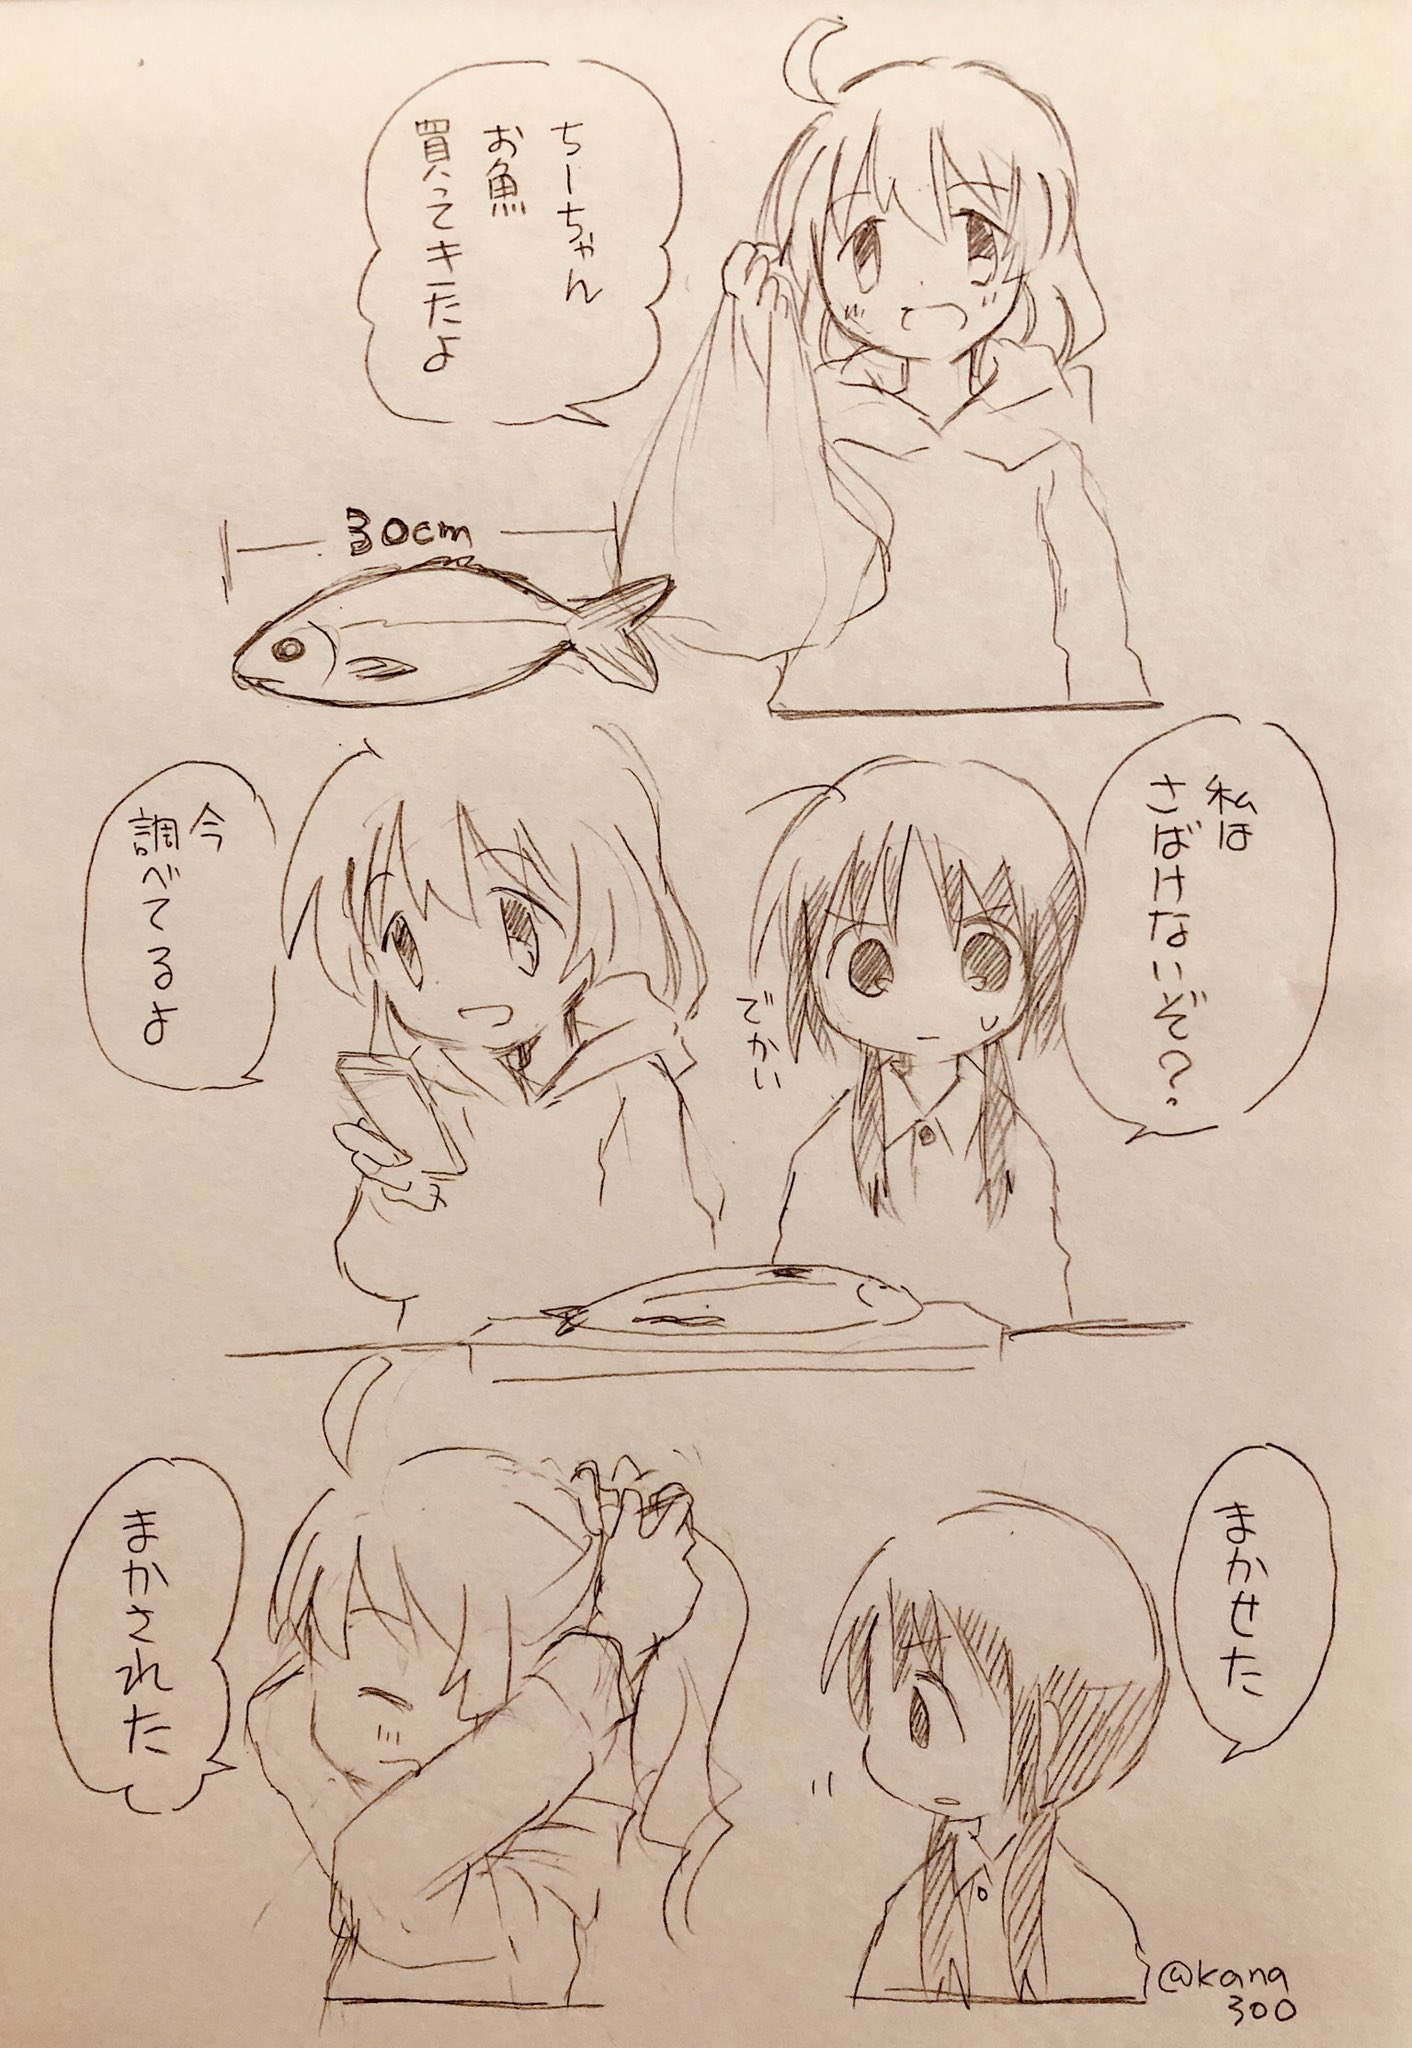 ちーちゃん
お魚
買ってキたよ
30cm
私は
さばけないぞ?
でかい
今
調べてるよ
まかせた
まかされた
@kana
300